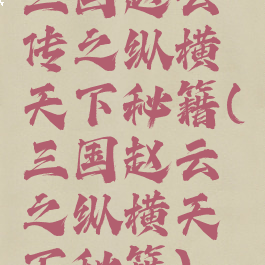 三国赵云
传之纵横
天下秘籍(
三国赵云
之纵横天
下秘籍)